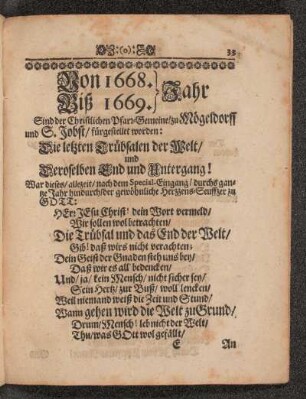 33
Von 1668.
Biß 1669. } Jahr
Sind der Christlichen Pfarr-Gemeine/zu Mögeldorff
und S. Jobst/ fürgestellet worden:
Die letzten Trübsalen der Welt/
und
Deroselben End und Untergang!
War dieses/allezeit/nach dem Special-Eingang/durchs gan-
tze Jahr hindurch/der gewöhnliche Hertzens-Seufftzer zu
GOTT:
HErr JEsu Christ/ dein Wort vermeld/
Wir sollen wol betrachten/
Die Trübsal und das End der Welt/
Gib/ daß wirs nicht verachten:
Dein Geist der Gnaden steh uns bey/
Daß wir es all bedencken/
Und/ ja/ kein Mensch/ nicht sicher sey/
Sein Hertz/ zur Buß/ woll lencken/
Weil niemand weiß die Zeit und Stund/
Wann gehen wird die Welt zu Grund/
Drum/ Mensch/ leb nicht der Welt/
Thu/ was GOtt wol gefällt/
E An